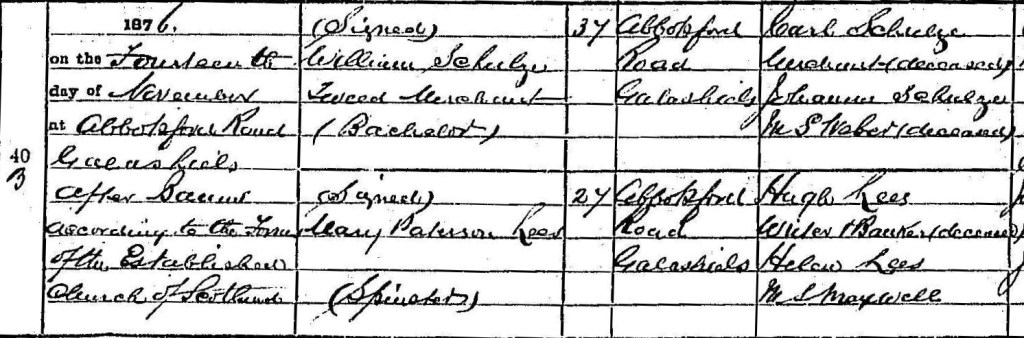 1876. (Signed) 37 Abbotsford Carl Schulze
on the Fourteenth William Schulze Road Merchant (deceased)
day of November Tweed Merchant Galashiels Johanna Schulze
at Abbotsford Road (Bachelor) M.S. Weber (deceased)
40
Galashiels
3
After Banns (Signed) 27 Abbotsford Hugh Lees
according to the Form Mary Paterson Lees Road Writer & Banker (deceased)
of the Established Galashiels Helen Lees
Church of Scotland (Spinster) M.S. Maxwell